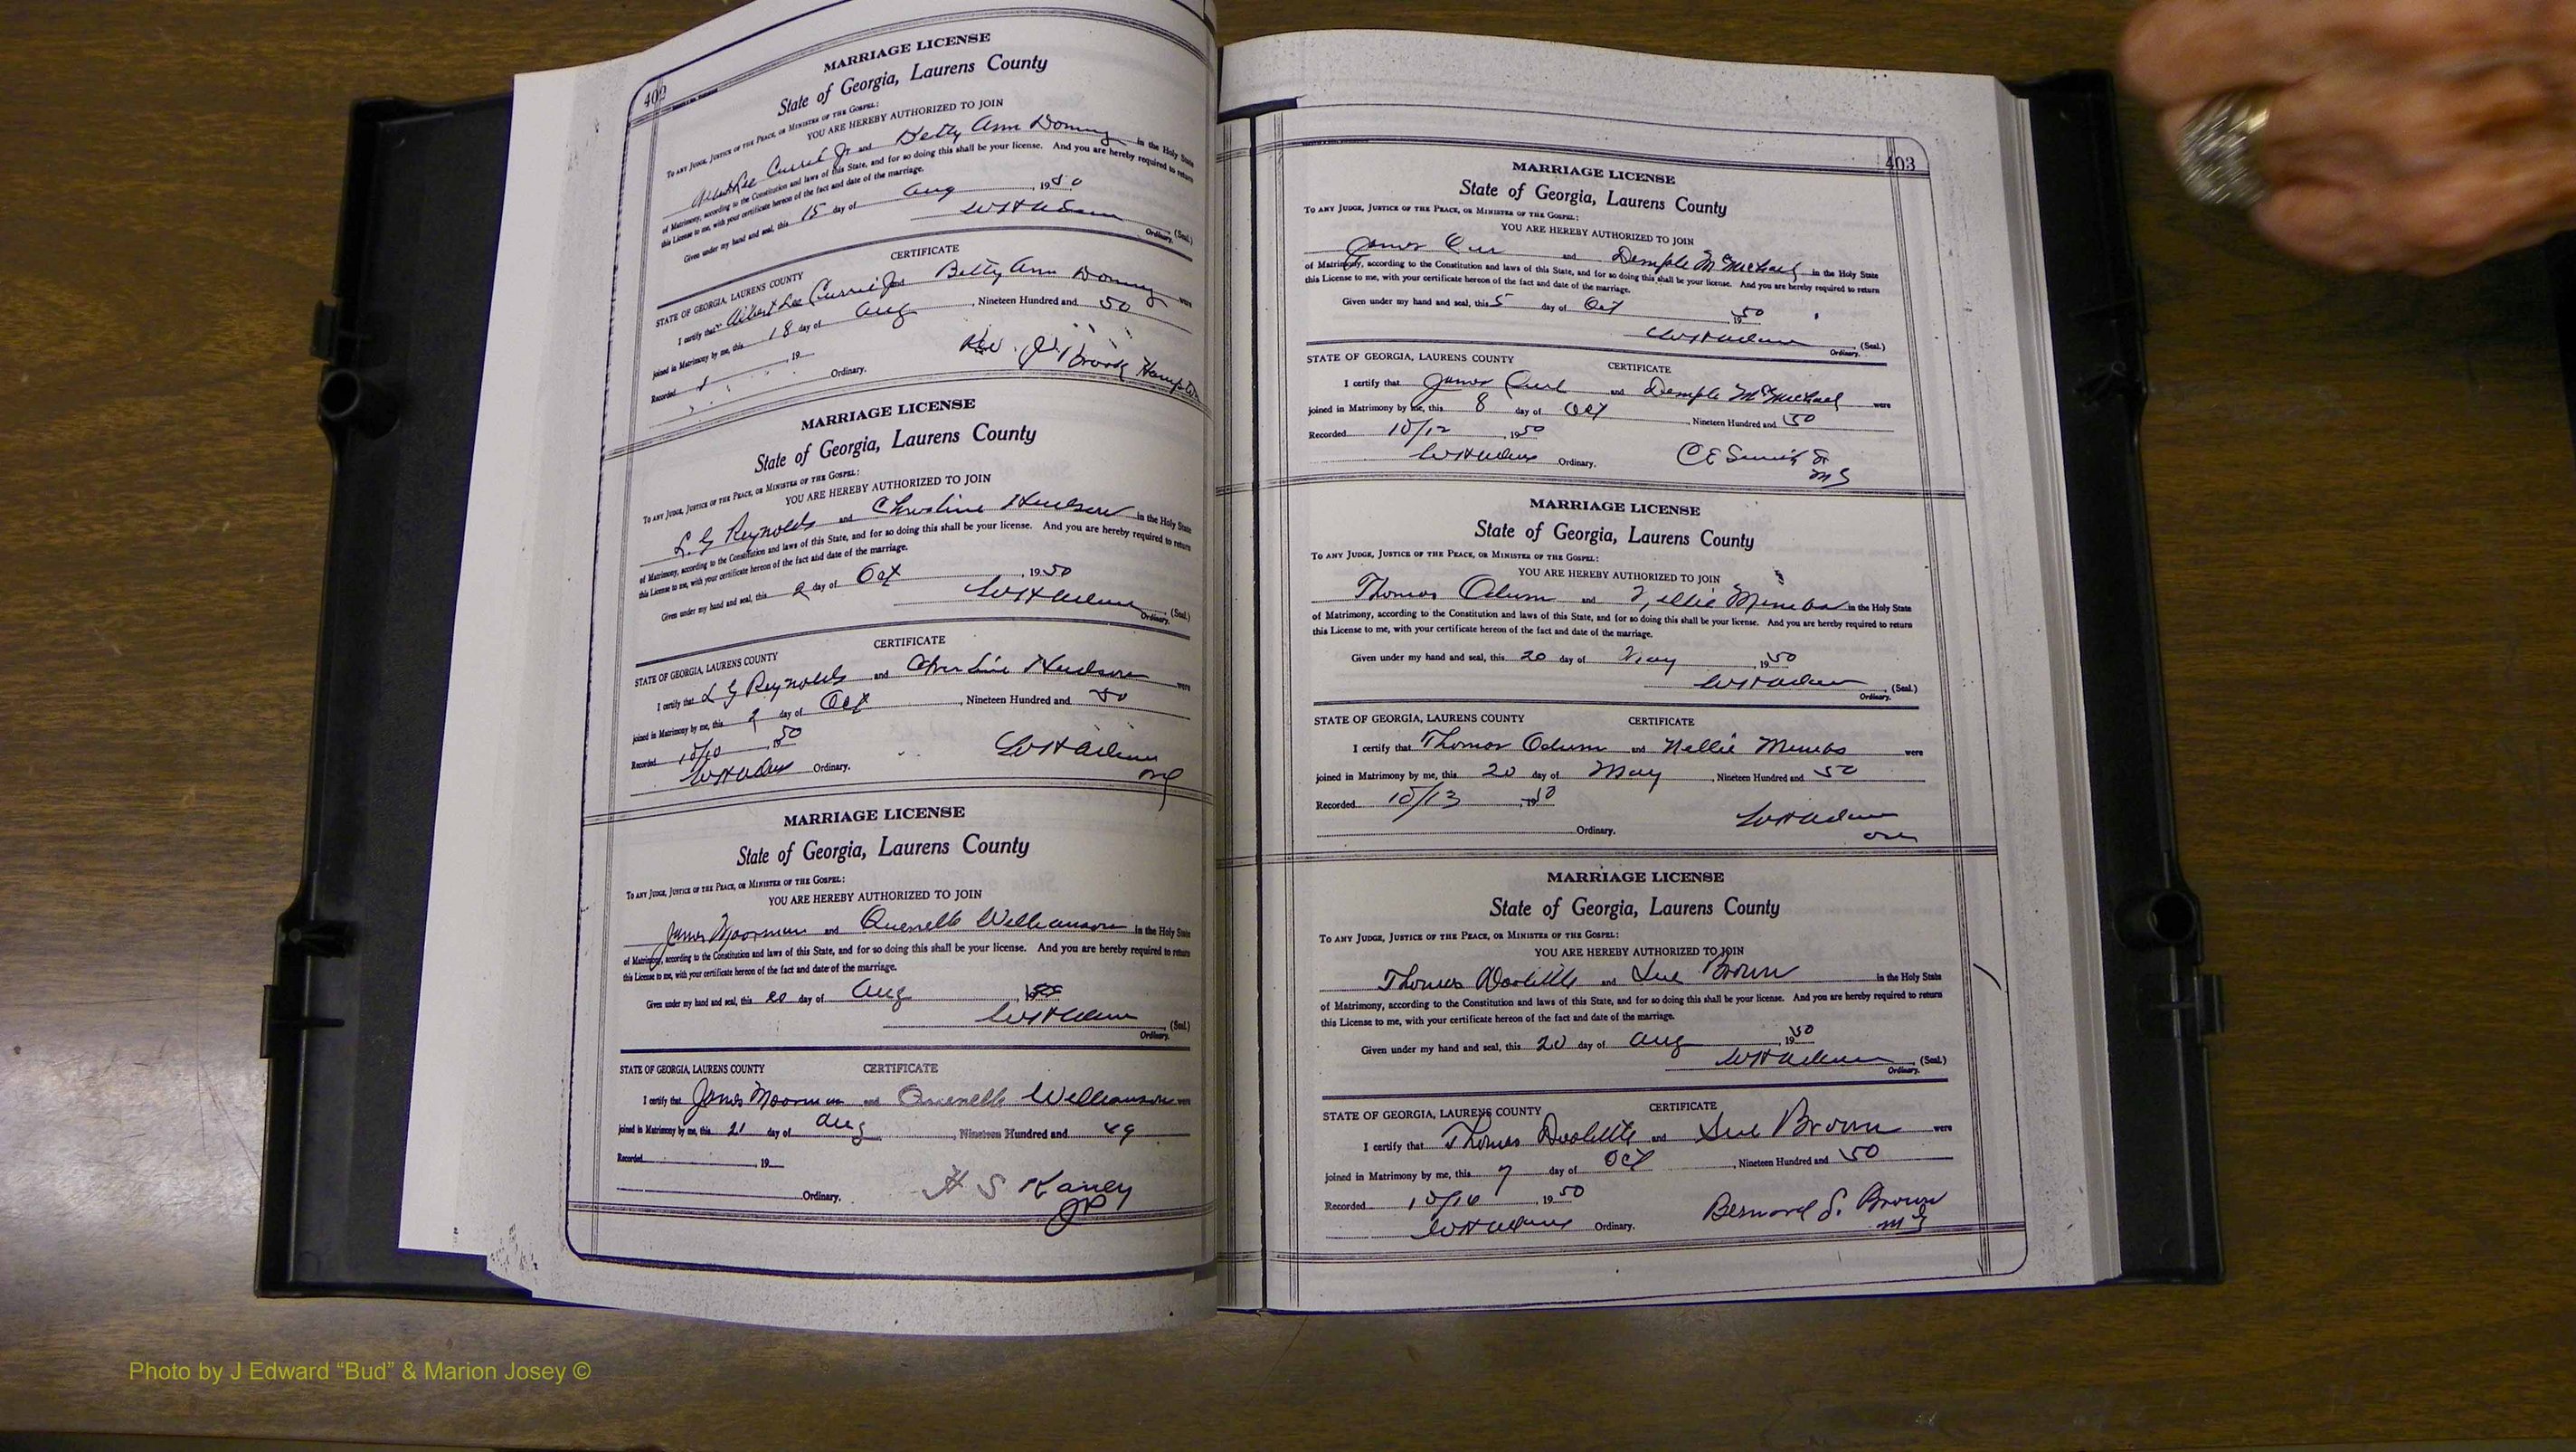 402
MARRIAGE LICENSE
State of Georgia, Laurens County
TO ANY JUDGE, JUSTICE OF THE PEACE, OR MINISTER OF THE GOSPEL:
YOU ARE HEREBY AUTHORIZED TO JOIN
Albert Lee Currie Jr and Betty Ann in the Holy State
of Matrimony, according to the Constitution and laws of this State, and for so doing this shall be your license. And you are hereby required to return
this License to me, with your certificate hereon of the fact and date of the marriage.
Given under my hand and seal, this 15 day of Aug, 1950
(Seal.)
Ordinary.
STATE OF GEORGIA, LAURENS COUNTY CERTIFICATE
I certify that Albert Lee Currie Jr and Betty Ann were
joined in Matrimony by me, this 18 day of Aug, Nineteen Hundred and 50
Recorded , 19
Ordinary. Rev.
MARRIAGE LICENSE
State of Georgia, Laurens County
TO ANY JUDGE, JUSTICE OF THE PEACE, OR MINISTER OF THE GOSPEL:
YOU ARE HEREBY AUTHORIZED TO JOIN
L. G Reynolds and Christine Hudson in the Holy State
of Matrimony, according to the Constitution and laws of this State, and for so doing this shall be your license. And you are hereby required to return
this License to me, with your certificate hereon of the fact and date of the marriage.
Given under my hand and seal, this 9 day of Oct, 1950
(Seal.)
Ordinary.
STATE OF GEORGIA, LAURENS COUNTY CERTIFICATE
I certify that L G Reynolds and Christine Hudson were
joined in Matrimony by me, this 9 day of Oct, Nineteen Hundred and 50
Recorded 10/10, 1950
Ordinary.
MARRIAGE LICENSE
State of Georgia, Laurens County
TO ANY JUDGE, JUSTICE OF THE PEACE, OR MINISTER OF THE GOSPEL:
YOU ARE HEREBY AUTHORIZED TO JOIN
James Moorman and Quenelle Williamson in the Holy State
of Matrimony, according to the Constitution and laws of this State, and for so doing this shall be your license. And you are hereby required to return
this License to me, with your certificate hereon of the fact and date of the marriage.
Given under my hand and seal, this 20 day of Aug
(Seal.)
Ordinary.
STATE OF GEORGIA, LAURENS COUNTY CERTIFICATE
I certify that James Moorman and Quenelle Williamson were
joined in Matrimony by me, this 21 day of Aug, Nineteen Hundred and 49
Recorded , 19
Ordinary. H S
JP
403
MARRIAGE LICENSE
State of Georgia, Laurens County
TO ANY JUDGE, JUSTICE OF THE PEACE, OR MINISTER OF THE GOSPEL:
YOU ARE HEREBY AUTHORIZED TO JOIN
James and Demple McMichael in the Holy State
of Matrimony, according to the Constitution and laws of this State, and for so doing this shall be your license. And you are hereby required to return
this License to me, with your certificate hereon of the fact and date of the marriage.
Given under my hand and seal, this 5 day of Oct 1950
(Seal.)
Ordinary.
STATE OF GEORGIA, LAURENS COUNTY CERTIFICATE
I certify that James and Demple McMichael were
joined in Matrimony by me, this 8 day of Oct, Nineteen Hundred and 50
Recorded 10/12, 1950
Ordinary. C E
MG
MARRIAGE LICENSE
State of Georgia, Laurens County
TO ANY JUDGE, JUSTICE OF THE PEACE, OR MINISTER OF THE GOSPEL:
YOU ARE HEREBY AUTHORIZED TO JOIN
Thomas Odum and Nellie Mimbs in the Holy State
of Matrimony, according to the Constitution and laws of this State, and for so doing this shall be your license. And you are hereby required to return
this License to me, with your certificate hereon of the fact and date of the marriage.
Given under my hand and seal, this 20 day of May, 1950
(Seal.)
Ordinary.
STATE OF GEORGIA, LAURENS COUNTY CERTIFICATE
I certify that Thomas Odum and Nellie Mimbs were
joined in Matrimony by me, this 20 day of May, Nineteen Hundred and 50
Recorded 10/13, 1950
Ordinary.
MARRIAGE LICENSE
State of Georgia, Laurens County
TO ANY JUDGE, JUSTICE OF THE PEACE, OR MINISTER OF THE GOSPEL:
YOU ARE HEREBY AUTHORIZED TO JOIN
Thomas and Sue Brown in the Holy State
of Matrimony, according to the Constitution and laws of this State, and for so doing this shall be your license. And you are hereby required to return
this License to me, with your certificate hereon of the fact and date of the marriage.
Given under my hand and seal, this 20 day of Aug, 1950
(Seal.)
Ordinary.
STATE OF GEORGIA, LAURENS COUNTY CERTIFICATE
I certify that Thomas and Sue Brown were
joined in Matrimony by me, this 7 day of Oct, Nineteen Hundred and 50
Recorded 10/16, 1950
Ordinary. Bernard S. Brown
MG
Photo by J Edward “Bud” & Marion Josey ©